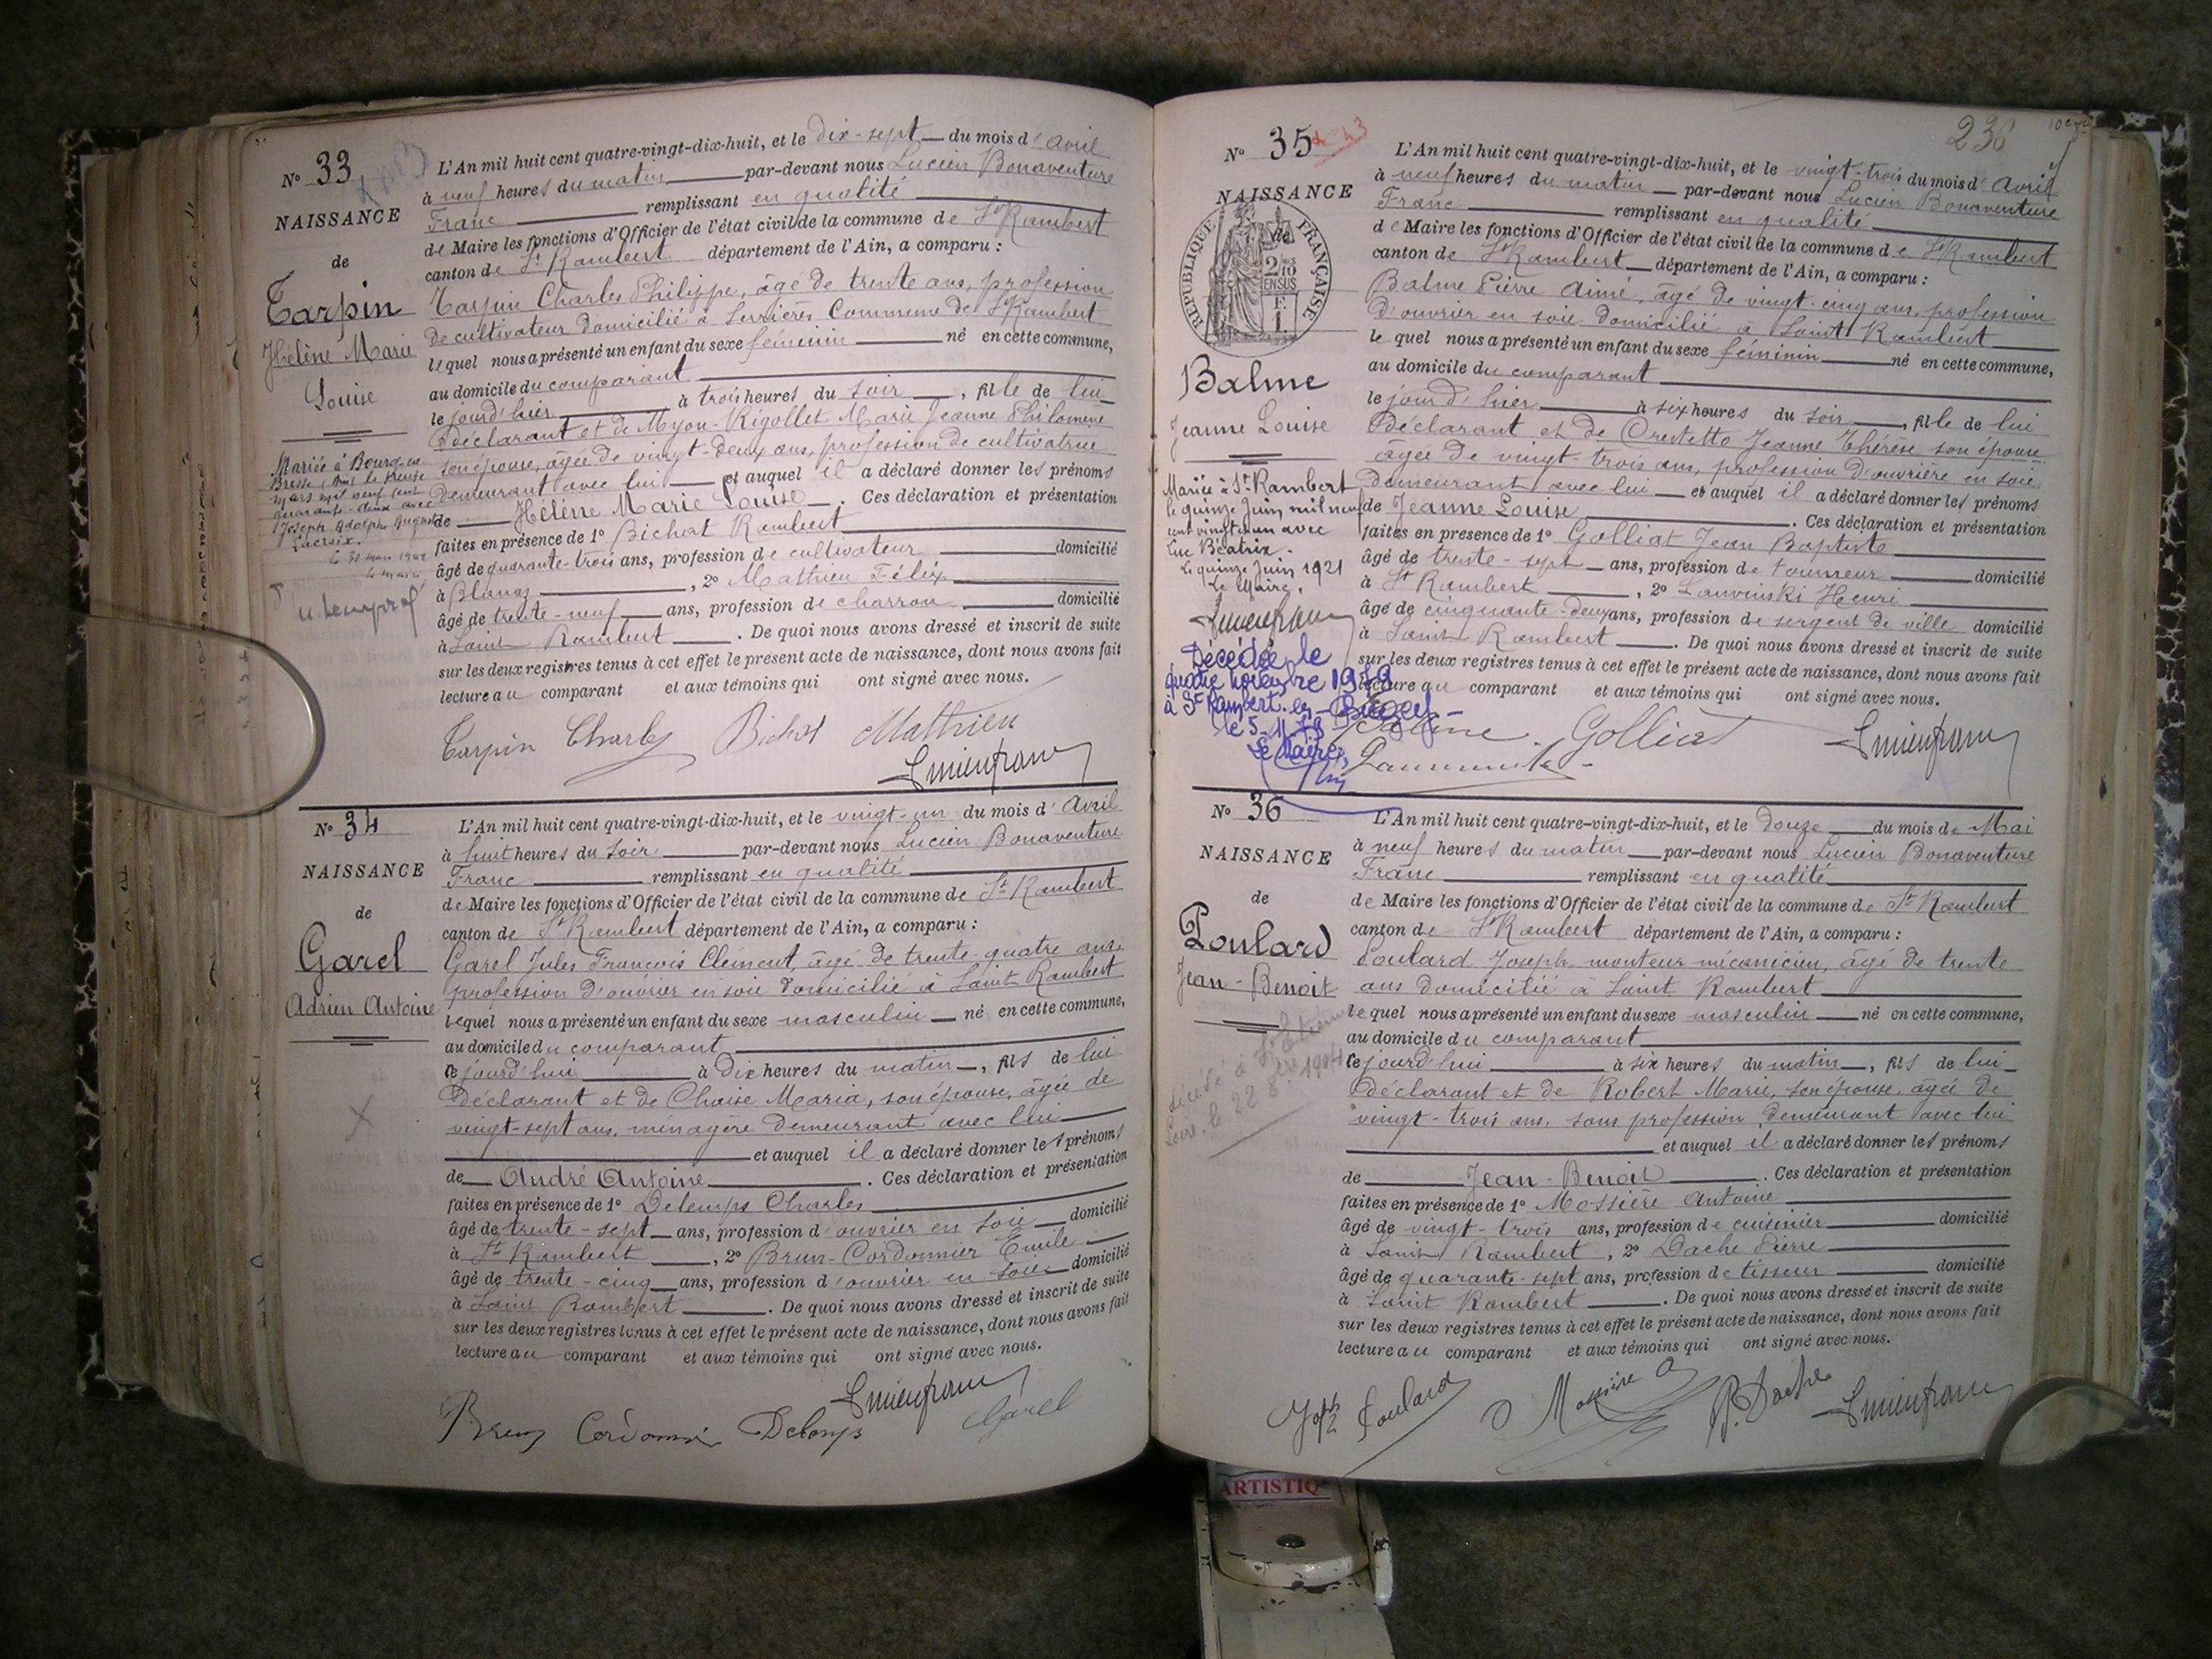 N° 33
NAISSANCE
de
Tarpin
Hélène Marie
Louise
Mariée à Bourg en
Bresse (Ain) le treize
mars mil neuf cent
quarante-deux avec
Joseph Adolphe August
Lacroix.
L'An mil huit cent quatre-vingt-dix-huit, et le dix-sept du mois d'avril
à neuf heures du matin par-devant nous Lucien Bonaventure
Franc remplissant en qualité
de Maire les fonctions d'Officier de l'état civil de la commune de St Rambert
canton de St Rambert département de l'Ain, a comparu :
Tarpin Charles Philippe, âgé de trente ans, profession
de cultivateur domicilié à Serrières Commune de St Rambert
lequel nous a présenté un enfant du sexe féminin né en cette commune,
au domicile du comparant
le jourd'hier à trois heures du soir, fille de lui
déclarant et de Myon-Rigollet Marie Jeanne Philomène
son épouse, âgée de vingt-deux ans, profession de cultivatrice
demeurant avec lui et auquel il a déclaré donner les prénoms
de Hélène Marie Louise. Ces déclaration et présentation
faites en présence de 1° Bichat Rambert
âgé de quarante-trois ans, profession de cultivateur domicilié
à Blanaz, 2° Mathieu Félix
âgé de trente-neuf ans, profession de charron domicilié
à Saint Rambert. De quoi nous avons dressé et inscrit de suite
sur les deux registres tenus à cet effet le présent acte de naissance, dont nous avons fait
lecture au comparant et aux témoins qui ont signé avec nous.
Tarpin Charles Bichat Mathieu
N° 34
NAISSANCE
de
Garel
Adrien Antoine
L'An mil huit cent quatre-vingt-dix-huit, et le vingt-un du mois d'Avril
à huit heures du soir par-devant nous Lucien Bonaventure
Franc remplissant en qualité
de Maire les fonctions d'Officier de l'état civil de la commune de St Rambert
canton de St Rambert département de l'Ain, a comparu :
Garel Jules François Clément, âgé de trente-quatre ans,
profession d'ouvrier en soie domicilié à Saint Rambert
lequel nous a présenté un enfant du sexe masculin né en cette commune,
au domicile du comparant
ce jourd'hui à dix heures du matin, fils de lui
déclarant et de Chaise Maria, son épouse, âgée de
vingt-sept ans, ménagère demeurant avec lui
et auquel il a déclaré donner les prénoms
de André Antoine. Ces déclaration et présentation
faites en présence de 1° Delemps Charles
âgé de trente-sept ans, profession d'ouvrier en soie domicilié
à St Rambert, 2° Brun-Cordonnier Emile
âgé de trente-cinq ans, profession d'ouvrier en soie domicilié
à Saint Rambert. De quoi nous avons dressé et inscrit de suite
sur les deux registres tenus à cet effet le présent acte de naissance, dont nous avons fait
lecture au comparant et aux témoins qui ont signé avec nous.
Brun Cordonnier Delemps Garel
236
N° 35
NAISSANCE
de
RÉPUBLIQUE FRANÇAISE
2/10
EN SUS
Balme
Jeanne Louise
Mariée à St Rambert
le quinze Juin mil neuf
cent vingt et un avec
Luc Béatrix.
Le quinze Juin 1921
Le Maire,
Décédée le
quatre novembre 1979
à St Rambert-en-Bugey
le 5-11-79
Le Maire,
L'An mil huit cent quatre-vingt-dix-huit, et le vingt-trois du mois d'Avril
à neuf heures du matin par-devant nous Lucien Bonaventure
Franc remplissant en qualité
de Maire les fonctions d'Officier de l'état civil de la commune de St Rambert
canton de St Rambert département de l'Ain, a comparu :
Balme Pierre Aimé, âgé de vingt-cinq ans, profession
d'ouvrier en soie domicilié à Saint Rambert
lequel nous a présenté un enfant du sexe féminin né en cette commune,
au domicile du comparant
le jourd'hier à six heures du soir, fille de lui
déclarant et de Crestetto Jeanne Thérèse son épouse
âgée de vingt-trois ans, profession d'ouvrière en soie
demeurant avec lui et auquel il a déclaré donner les prénoms
de Jeanne Louise. Ces déclaration et présentation
faites en présence de 1° Golliat Jean Baptiste
âgé de trente-sept ans, profession de tourneur domicilié
à St Rambert, 2° Henri
âgé de cinquante-deux ans, profession de sergent de ville domicilié
à Saint Rambert. De quoi nous avons dressé et inscrit de suite
sur les deux registres tenus à cet effet le présent acte de naissance, dont nous avons fait
lecture au comparant et aux témoins qui ont signé avec nous.
Balme Golliat
N° 36
NAISSANCE
de
Poulard
Jean-Benoit
décédé à St Etienne
Loire, le 22 8bre 1904
L'An mil huit cent quatre-vingt-dix-huit, et le douze du mois de Mai
à neuf heures du matin par-devant nous Lucien Bonaventure
Franc remplissant en qualité
de Maire les fonctions d'Officier de l'état civil de la commune de St Rambert
canton de St Rambert département de l'Ain, a comparu :
Poulard Joseph monteur mécanicien, âgé de trente
ans domicilié à Saint Rambert
lequel nous a présenté un enfant du sexe masculin né en cette commune,
au domicile du comparant
ce jourd'hui à six heures du matin, fils de lui
déclarant et de Robert Marie, son épouse, âgée de
vingt-trois ans, sans profession, demeurant avec lui
et auquel il a déclaré donner les prénoms
de Jean-Benoit. Ces déclaration et présentation
faites en présence de 1° Mossière Antoine
âgé de vingt-trois ans, profession de cuisinier domicilié
à Saint Rambert, 2° Dache Pierre
âgé de quarante-sept ans, profession de tisseur domicilié
à Saint Rambert. De quoi nous avons dressé et inscrit de suite
sur les deux registres tenus à cet effet le présent acte de naissance, dont nous avons fait
lecture au comparant et aux témoins qui ont signé avec nous.
Joph Poulard Mossière P. Dache
ARTISTIQ